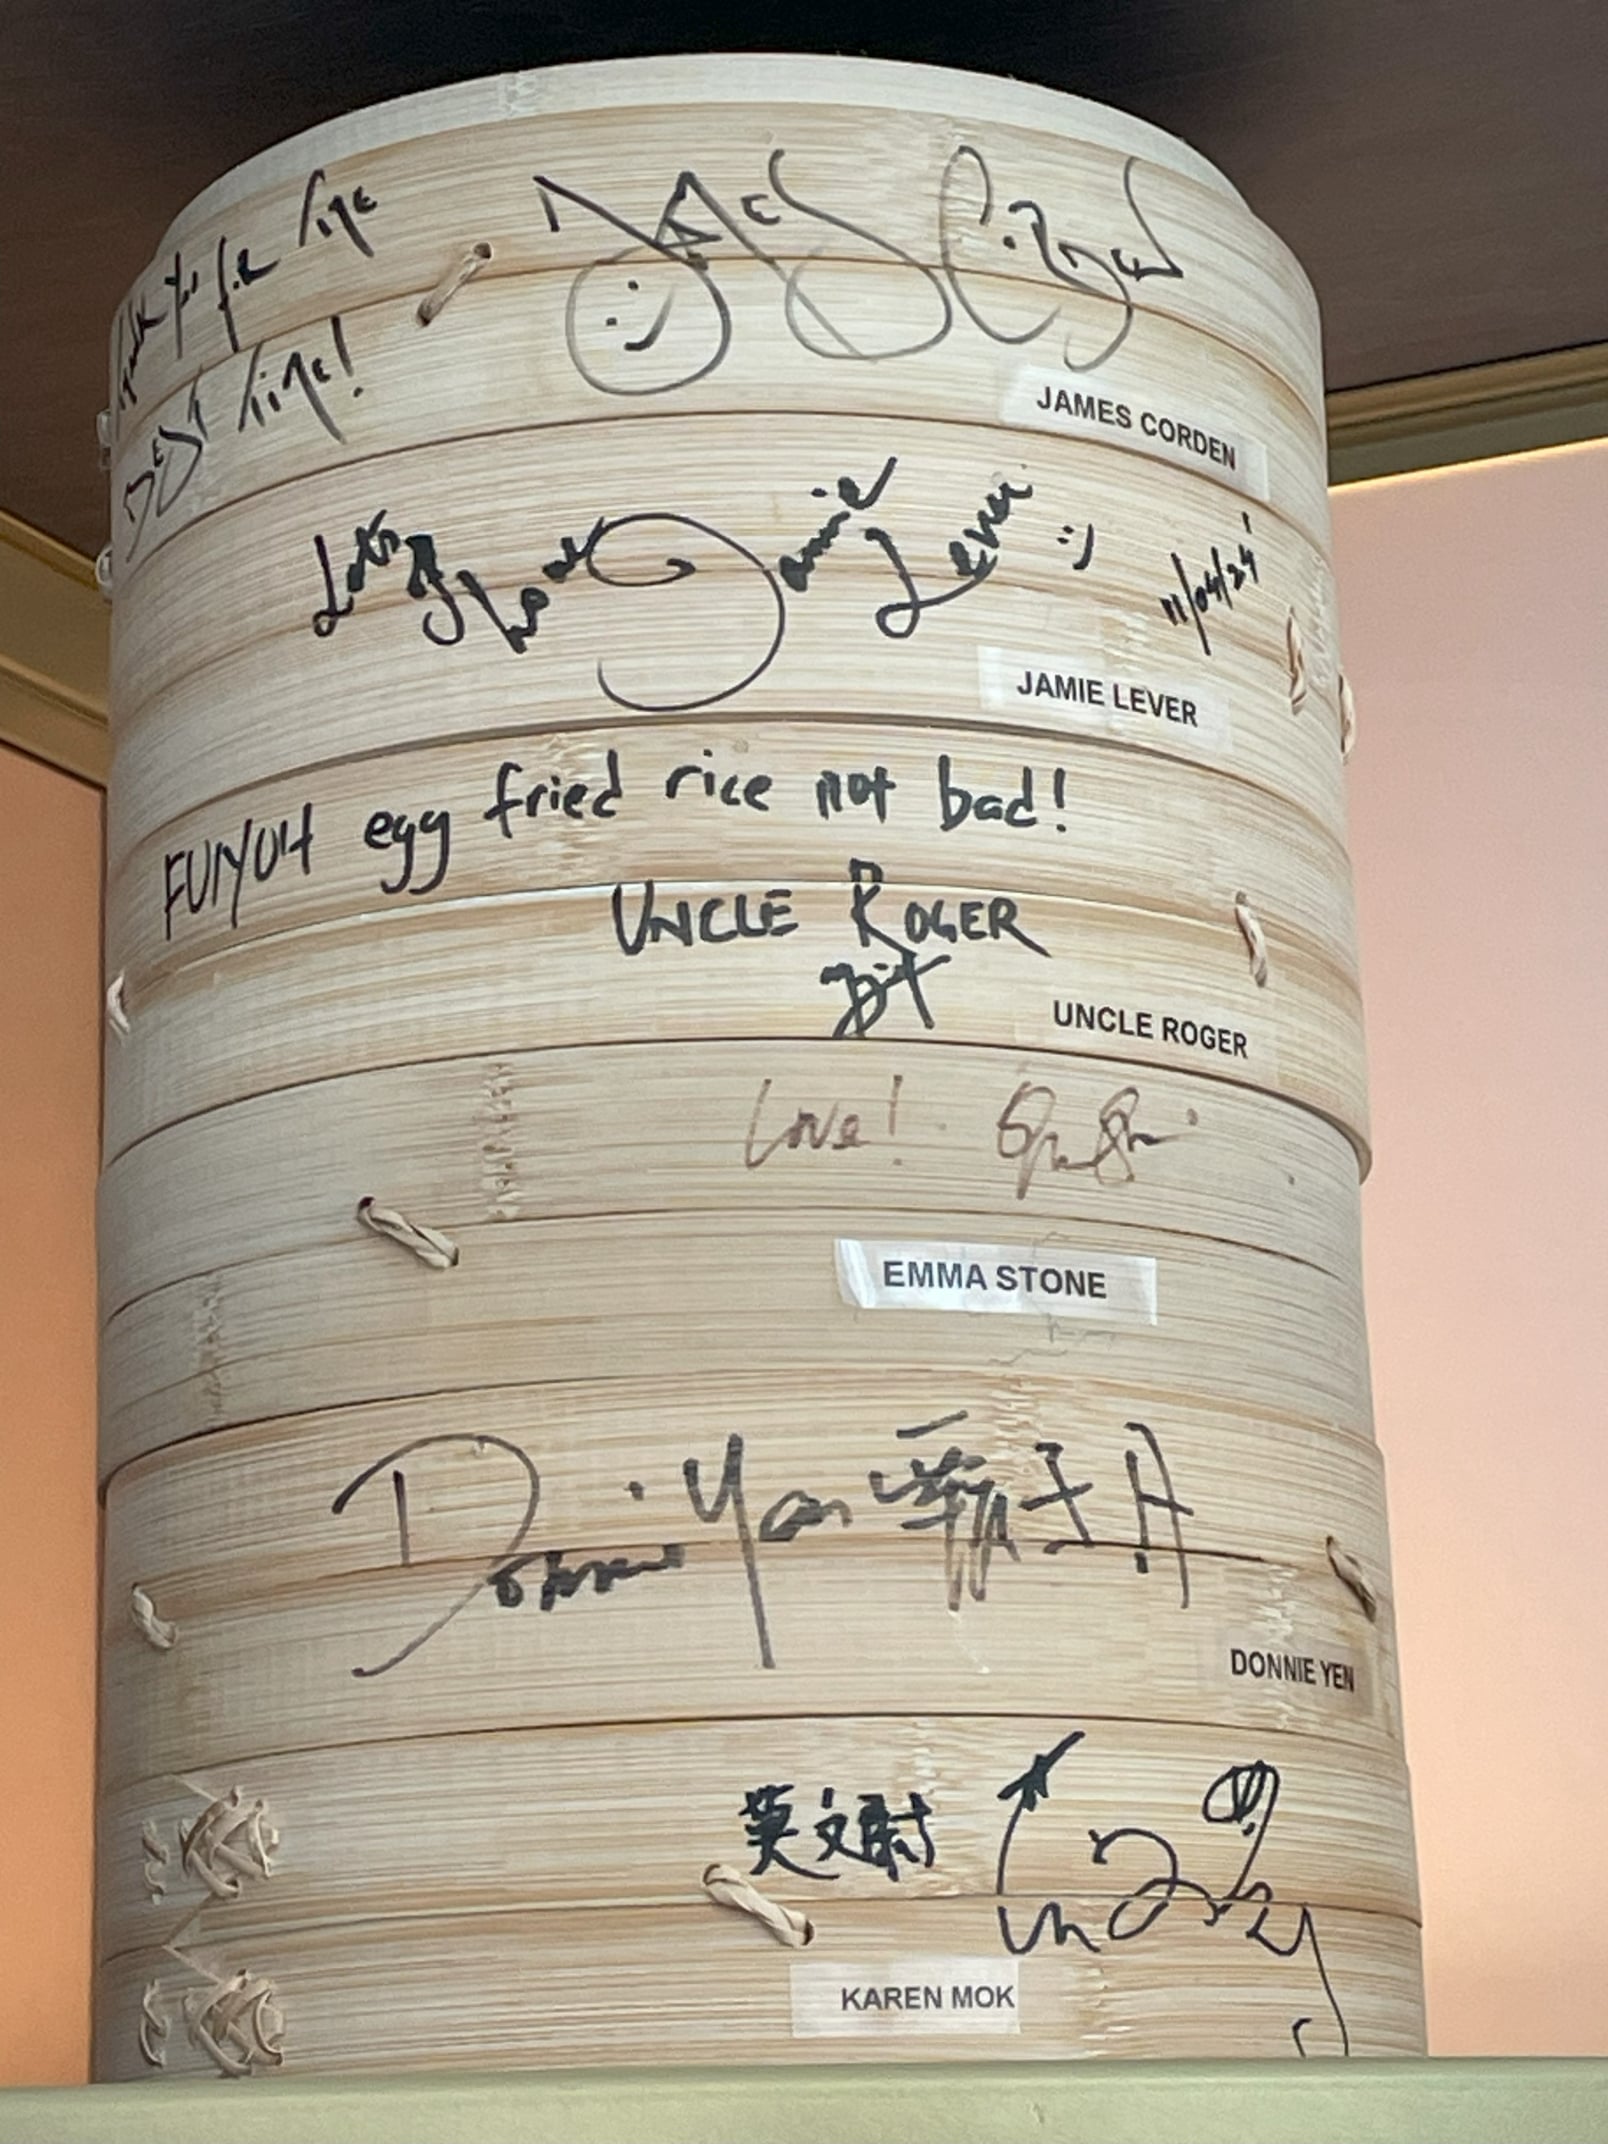 Thank you for the
Best Time!
James Corden
JAMES CORDEN
Lots of love Jamie Lever :)
11/04/24
JAMIE LEVER
FUIYOH egg fried rice not bad!
UNCLE ROGER
UNCLE ROGER
Love!
EMMA STONE
Donnie Yen 甄子丹
DONNIE YEN
莫文蔚
KAREN MOK